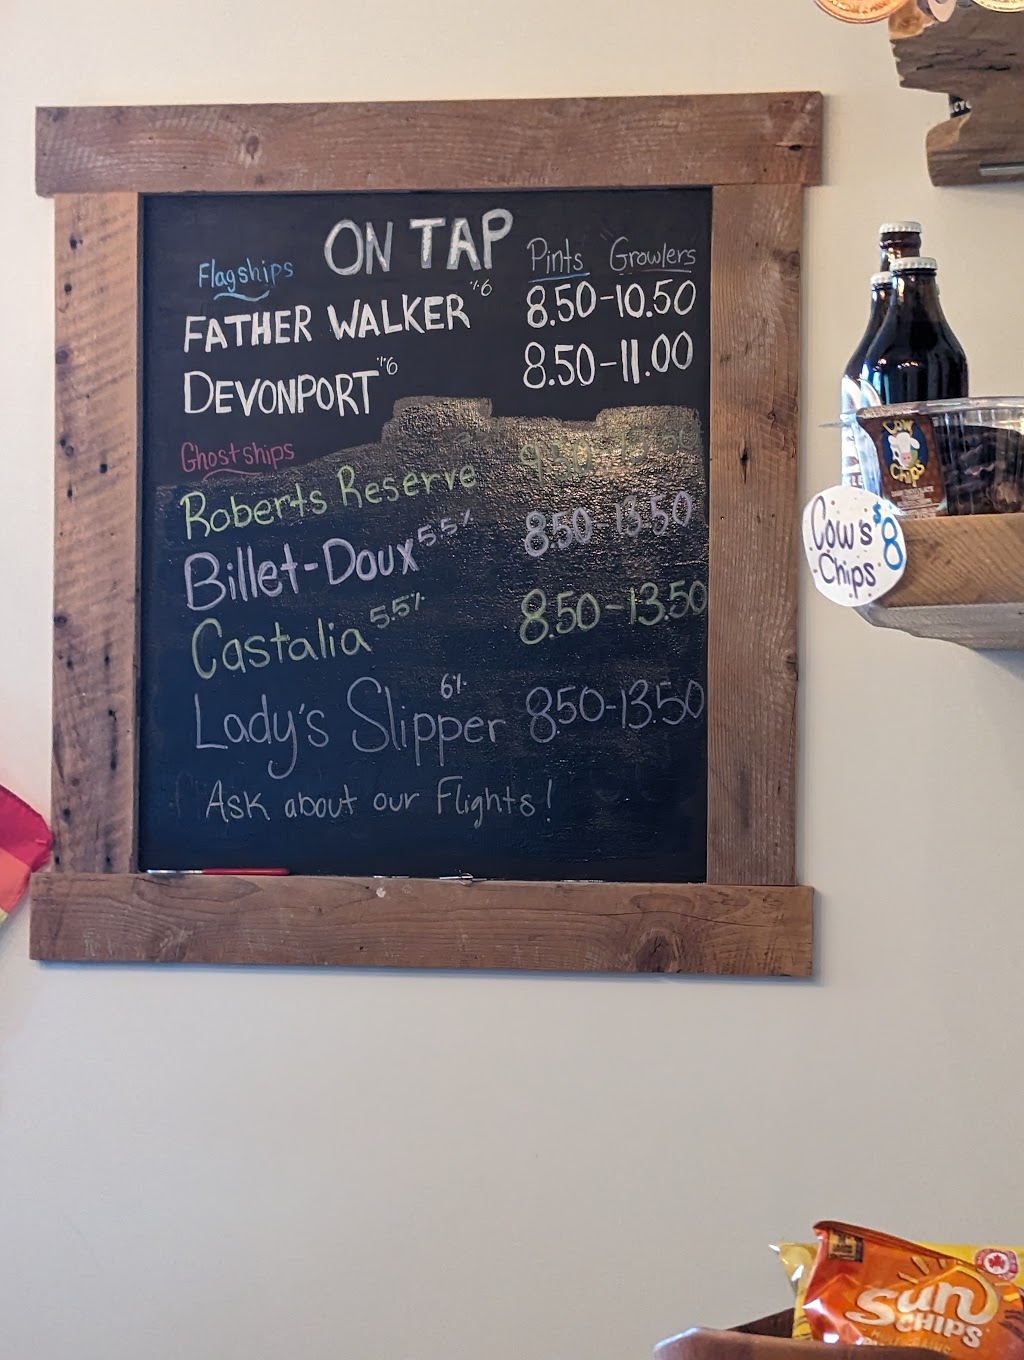 ON TAP
Flagships Pints Growlers
FATHER WALKER 8.50-10.50
DEVONPORT 8.50-11.00
Ghostships
Roberts Reserve
Billet-Doux 5.5% 8.50 13.50
Castalia 5.5% 8.50-13.50
Lady's Slipper 6% 8.50-13.50
Ask about our Flights!
Cow Chips
Cow's Chips $8
Sun CHIPS